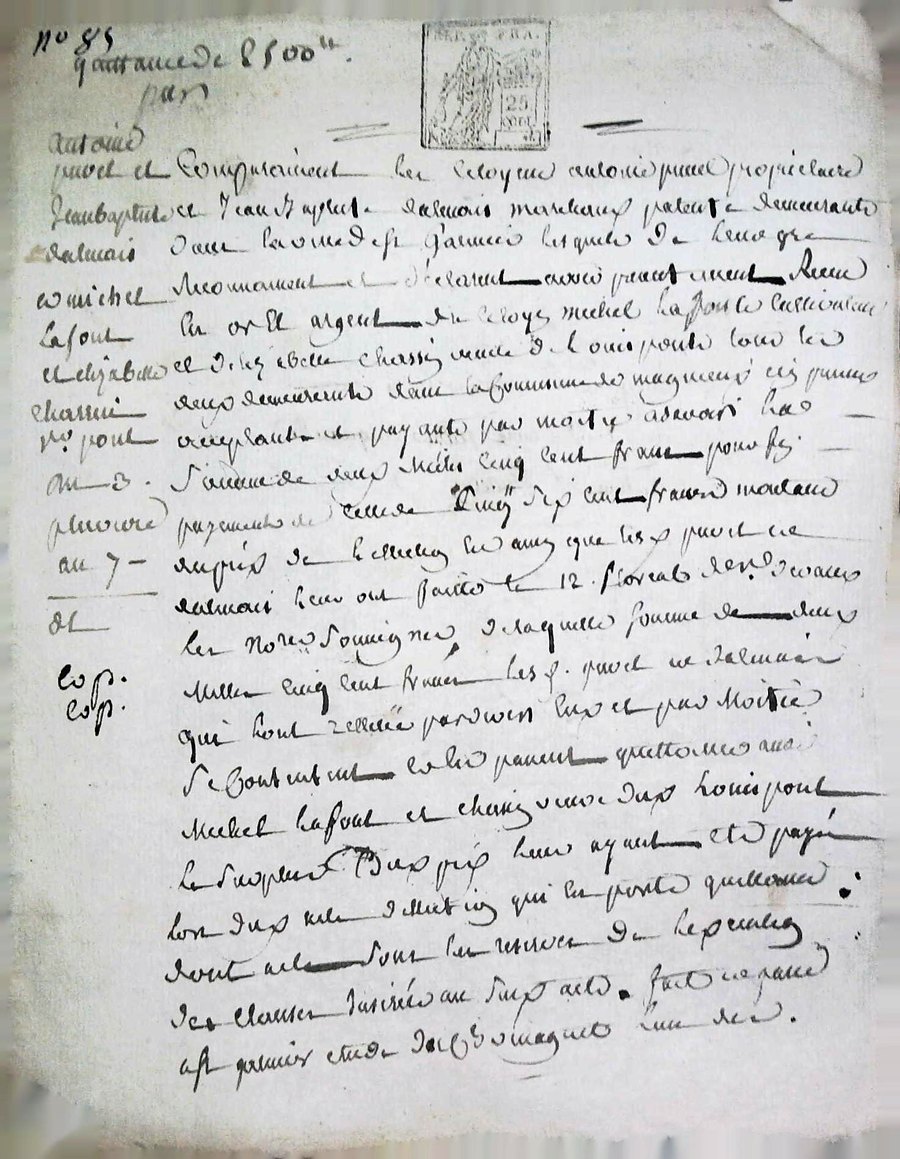 no 85
quittance de 2500 tt.
par
antoine
puvel et
Jean Baptiste
dalmais
a michel
lafont
et elizabette
chassin
ve pont
au 3.
pluviose
an 7 -
dt
cop.
cop.
REP. FRA.
25
CENT.
Comparaissent les citoyens antoine puvel propriétaire
et Jean Baptiste dalmais marchand patenté demeurants
dans la ville de st galmier lesquels de leur gre
reconnaissent et déclarent avoir presentement Receu
en or et argent du citoyen michel lafont cultivateur
et d'elizabette chassin veuve de Louis pont tous les
deux demeurants dans la commune de magneux cy presents
acceptants et payants par moitié a savoir la
Somme de deux Mille cinq cent francs pour fin
payement de celle de six cent francs montant
du prix de la que les puvel et
dalmais leur ont le 12. floreal devant
les Nores Soussignés, de laquelle somme de deux
Mille cinq cent francs les s. puvel et dalmais
qui l'ont par entreux et par Moitié
Se Contentent et en passent quittance aux
Michel lafont et chassin veuve dud Louis pont
le Surplus Dud prix leur ayant eté payé
lors dud acte qui en porte quittance
dont acte sous les reserves de l'execution
des clauses inserées au Susd acte. fait et passé
a st galmier etude l'un des.